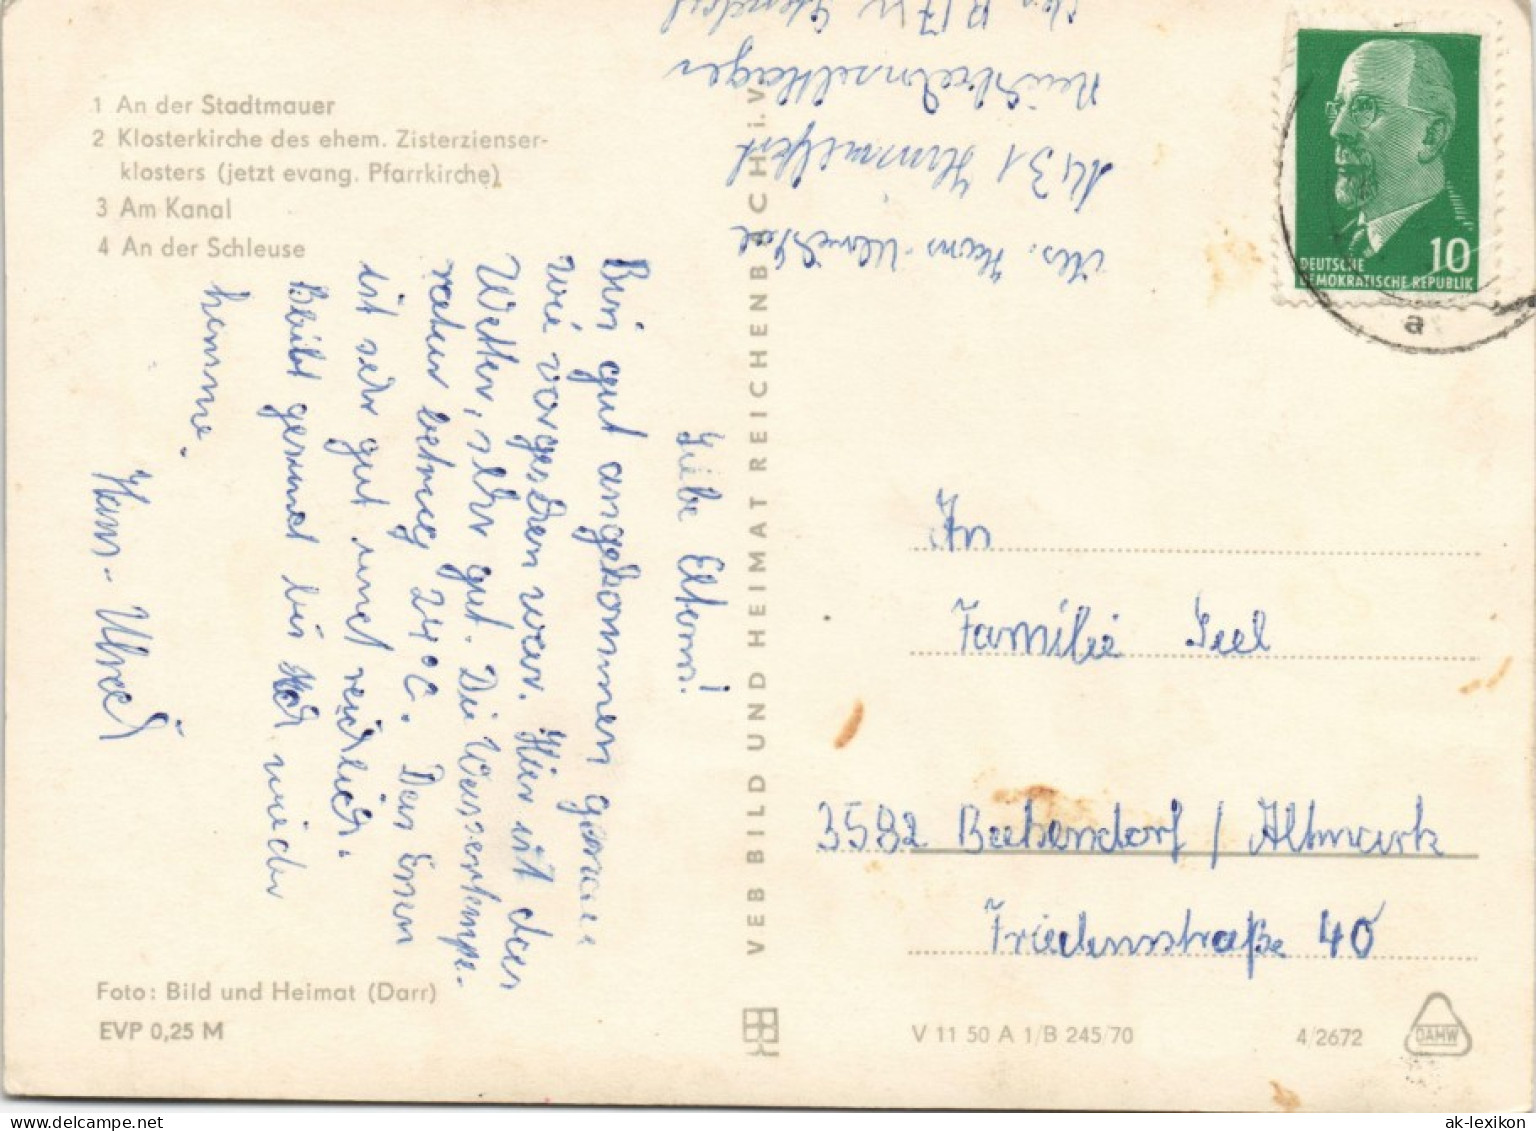 1 An der Stadtmauer
2 Klosterkirche des ehem. Zisterzienser-
klosters (jetzt evang. Pfarrkirche)
3 Am Kanal
4 An der Schleuse
Liebe Eltern!
Bin gut angekommen genau
wie vorgestern war. Hier ist das
Wetter, sehr gut. Die Wassertempe-
ratur betrug 24°C. Das Essen
ist sehr gut und reichlich.
Bleibt gesund bis ich wieder
komme.
Hans-Ulrich
Foto: Bild und Heimat (Darr)
EVP 0,25 M
VEB BILD UND HEIMAT REICHENBACH i. V.
Abs. Hans-Ulrich Seel
1431 Himmelpfort
DEUTSCHE
DEMOKRATISCHE REPUBLIK
10
a
An
Familie Seel
3582 Beetzendorf / Altmark
Friedensstraße 40
V 11 50 A 1/B 245/70
4/2672
DAHW
ak-lexikon